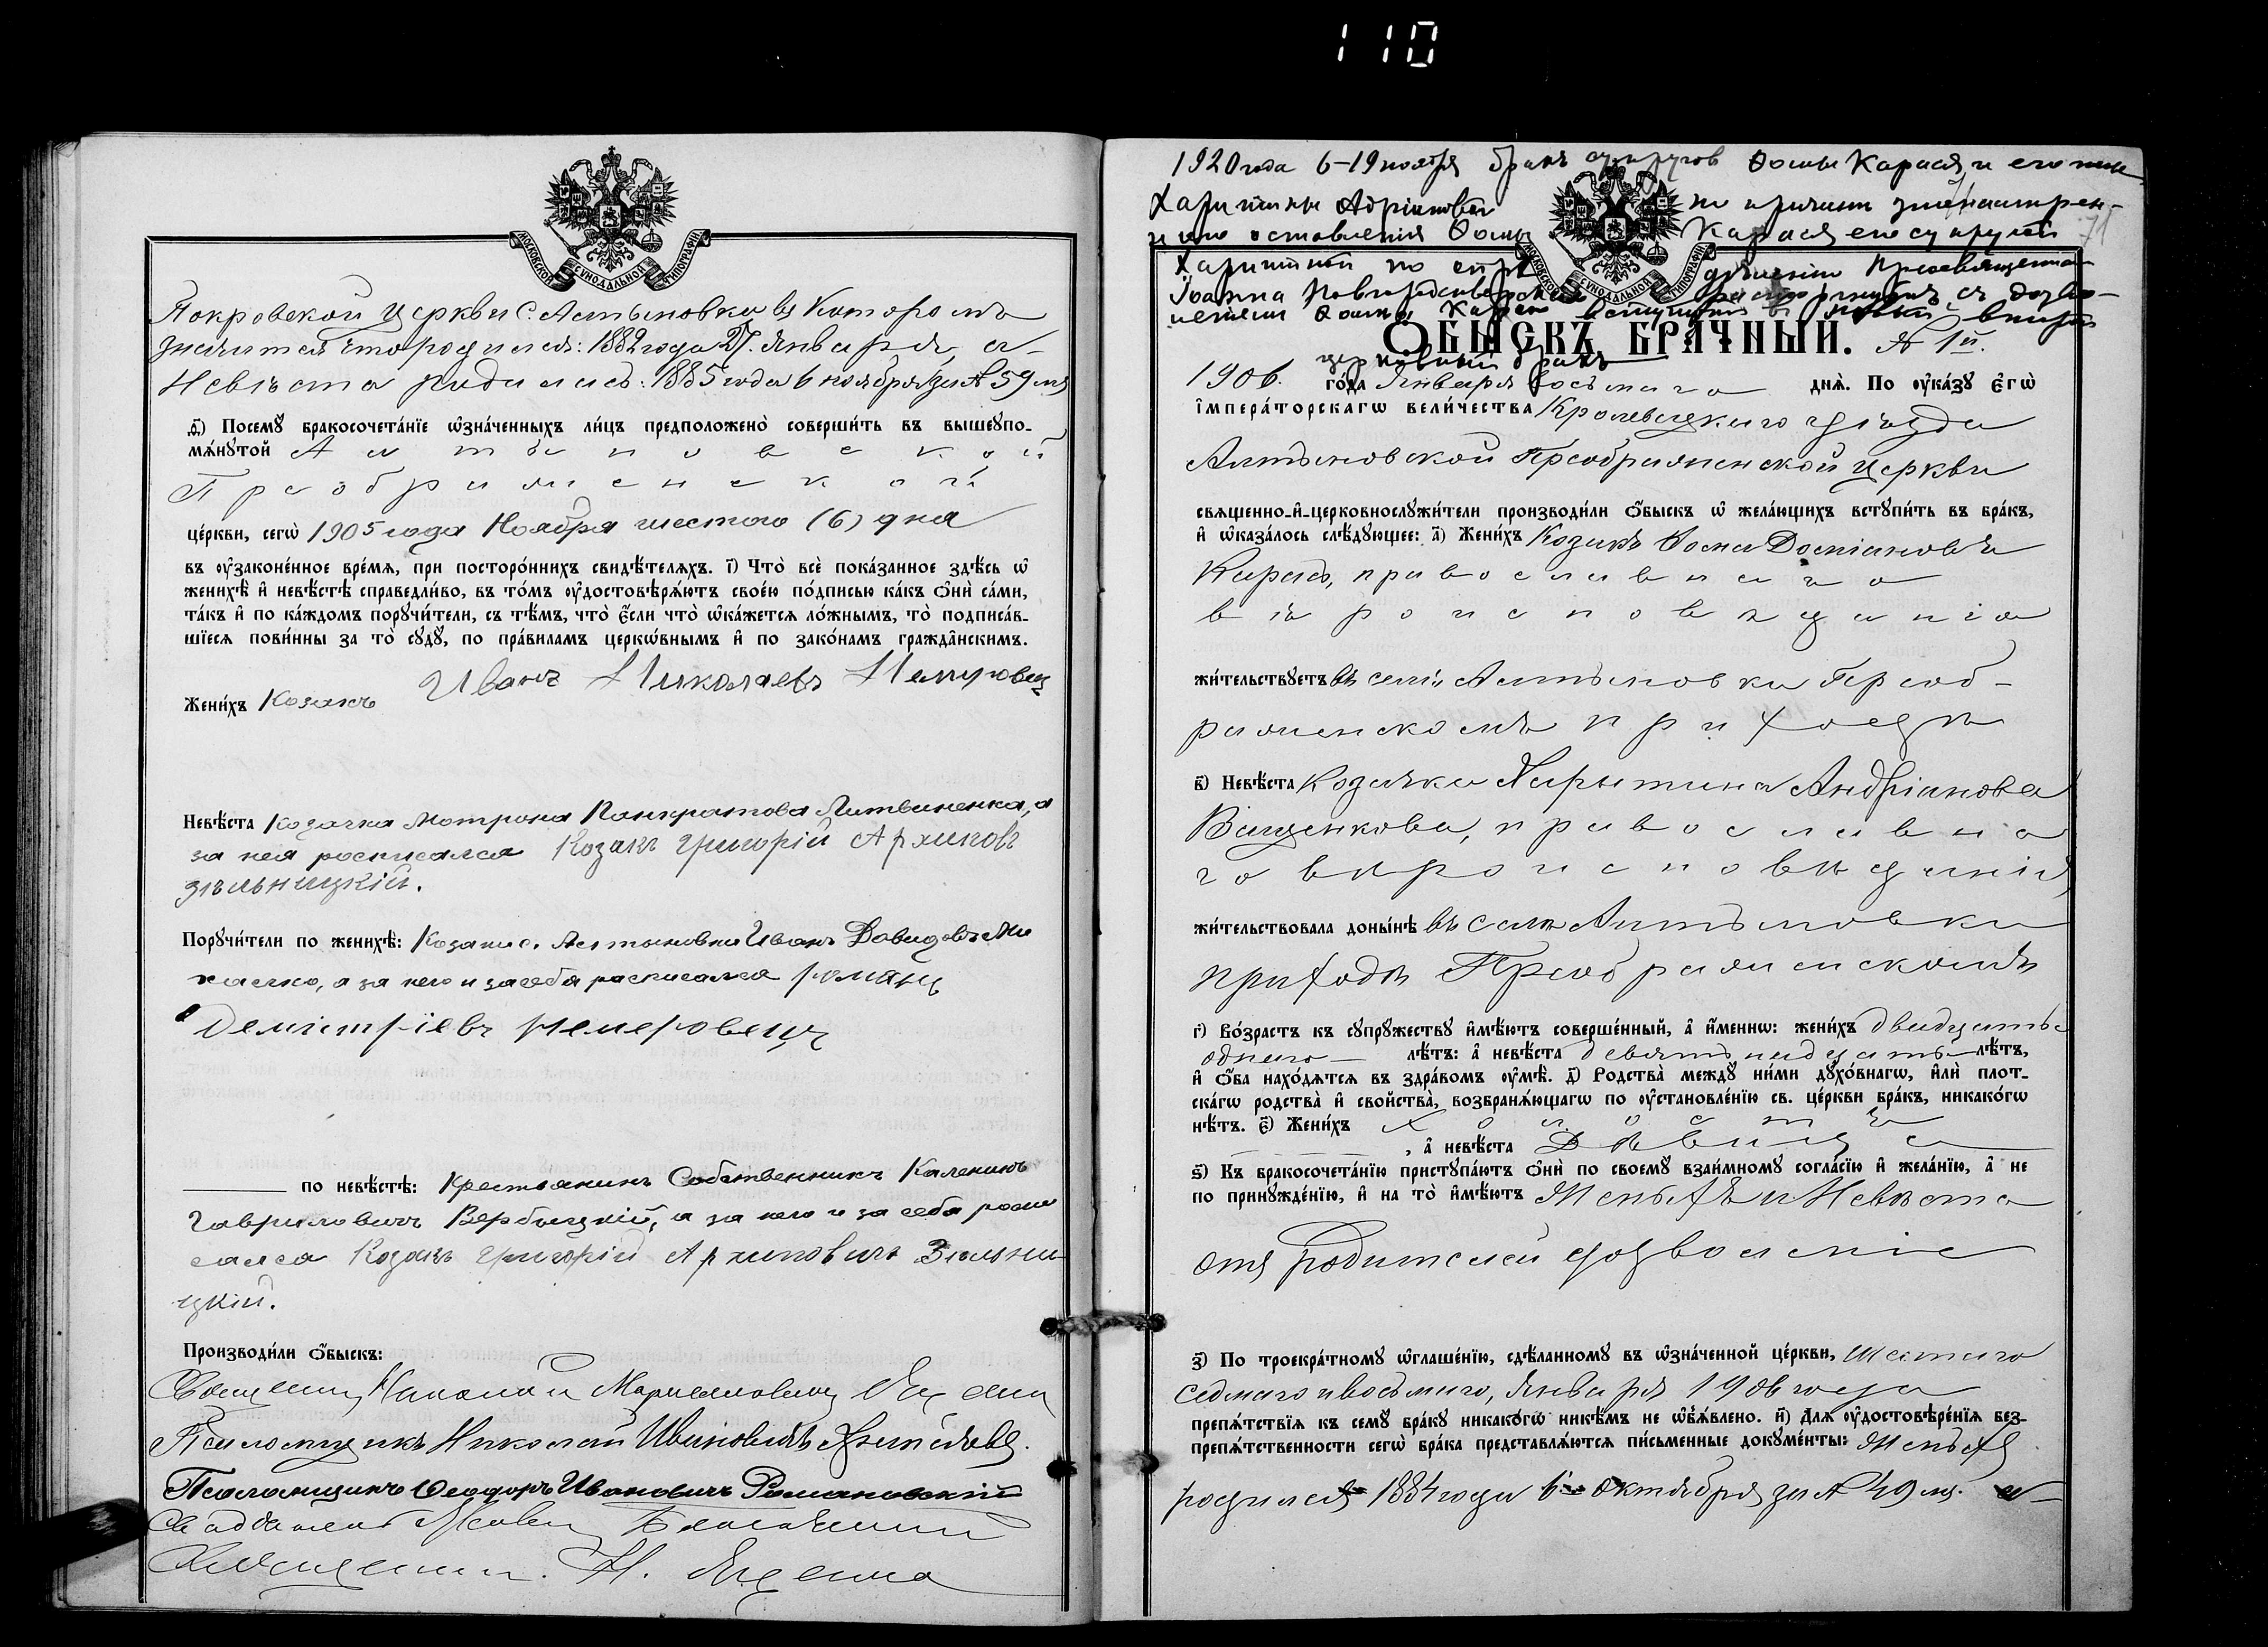 110
МОСКОВСКОЙ СѴНОДАЛЬНОЙ ТИПОГРАФІИ
Покровской церкви С. Алтыновки въ Которомъ
значится что родился: 1882 года 27. января, а
Невѣста родилась: 1885 года 6 ноября за № 59 мъ
д҃) Посемꙋ бракосочета́нїе ѡ҆зна́ченныхъ ли́цъ предположено̀ соверши́ть въ вышеꙋпо-
мѧ́нꙋтой Алтыновской
Преображенской
це́ркви, сегѡ̀ 1905 года Ноября шестого (6) дня
въ ᲂу҆зако́ненное вре́мѧ, при посторо́ннихъ свидѣ́телѧхъ. і҃) Что̀ всѐ пока́занное здѣ́сь ѡ҆
женихѣ̀ и҆ невѣ́стѣ справедли́во, въ то́мъ ᲂу҆достовѣрѧ́ютъ свое́ю по́дписью ка́къ ѻ҆нѝ са́ми,
та́къ и҆ по ка́ждомъ порꙋчи́тели, съ тѣ́мъ, что̀ є҆́сли что̀ ѡ҆ка́жетсѧ ло́жнымъ, то̀ подписа́в-
шїесѧ пови́нны за то̀ сꙋдꙋ̀, по пра́виламъ церкѡ́внымъ и҆ по зако́намъ гражда̂нскимъ.
Жени́хъ Козакъ Иванъ Николаевъ Немеровец
Невѣ́ста Козачка Мотрона Панкратова Литвиненкова, а
за нея росписался Козакъ Григорій Архиповъ
Зѣльницкій.
Порꙋчи́тели по женихѣ̀: Козакъ с. Алтыновки Иванъ Давидовъ Ми
халко, а за него и за себя росписался
Демитріевъ Немеровецъ
по невѣ́стѣ: Крестьянинъ Собственникъ Каленикъ
Гавриловичъ Вербицкій, а за него и за себя роспи
сался Козакъ Григорій Архиповичъ Зѣльни
цкій.
Производи́ли ѻ҆́быскъ:
Священникъ Николай
Псаломщикъ Николай Ивановичъ
Псаломщикъ Ѳеодоръ Ивановичъ Романовскій
Священникъ Н.
1920 года 6-19 ноября бракъ супруговъ Ѳомы Карася и его жены
Харитины Адріановой по причинѣ
оставления Ѳомы Карася его супругой
71
Харитиной по
Іоанна
МОСКОВСКОЙ СѴНОДАЛЬНОЙ ТИПОГРАФІИ
Ѻ҆́БЫСКЪ БРА́ЧНЫЙ. № 1й.
церковный бракъ
1906. го́да Января восьмаго днѧ̀. По ᲂу҆ка́зꙋ є҆гѡ̀
і҆мпера́торскагѡ вели́чества Кролевецкаго уѣзда
Алтыновской Преображенской церкви
свѧщенно-и҆-церковнослꙋжи́тели производи́ли ѻ҆́быскъ ѡ҆ жела́ющихъ встꙋпи́ть въ бра́къ,
и҆ ѡ҆каза́лось слѣ́дꙋющее: а҃) Жени́хъ Козакъ Ѳома Даміановъ
Карась, православнаго
вѣроисповѣданія
жи́тельствꙋетъ въ селѣ Алтыновки Преоб-
раженскомъ приходѣ
в҃) Невѣ́ста Козачка Харитина Андріанова
Ващенкова, православна
го вѣроисповѣданія,
жи́тельствовала доны́нѣ въ селѣ Алтыновки
приходѣ Преображенскомъ
г҃) Во́зрастъ къ сꙋпрꙋ́жествꙋ и҆мѣ́ютъ соверше́нный, а҆ и҆́менно: жени́хъ двадцать
одного лѣ́тъ: а҆ невѣ́ста девятнадцать лѣ́тъ,
и҆ ѻ҆́ба нахо́дѧтсѧ въ здра́вомъ ᲂу҆мѣ̀. д҃) Родства̀ междꙋ̀ ни́ми дꙋхо́внагѡ, и҆лѝ плот-
ска́гѡ родства̀ и҆ свойства̀, возбранѧ́ющагѡ по ᲂу҆становле́нїю св. це́ркви бра́къ, никако́гѡ
нѣ́тъ. є҃) Жени́хъ Холостъ
, а҆ невѣ́ста Дѣвица
ѕ҃) Къ бракосочета́нїю пристꙋпа́ютъ ѻ҆нѝ по своемꙋ̀ взаи́мномꙋ согла́сїю и҆ жела́нїю, а҆ не
по принꙋжде́нїю, и҆ на то̀ и҆мѣ́ютъ Женихъ и Невѣста
отъ родителей дозволеніе
з҃) По троекра́тномꙋ ѡ҆глаше́нїю, сдѣ́ланномꙋ въ ѡ҆зна́ченной це́ркви, шестаго
седмаго и восьмаго, января 1906 года
препѧ́тствїѧ къ семꙋ̀ бра́кꙋ никако́гѡ никѣ́мъ не ѡ҆б̾ѧ́влено. и҃) Длѧ̀ ᲂу҆достовѣре́нїѧ без-
препѧ́тственности сегѡ̀ бра́ка представлѧ́ютсѧ пи́сьменные докꙋме́нты: Женихъ
родился 1884 года 6 Октября за № 49 мъ. а